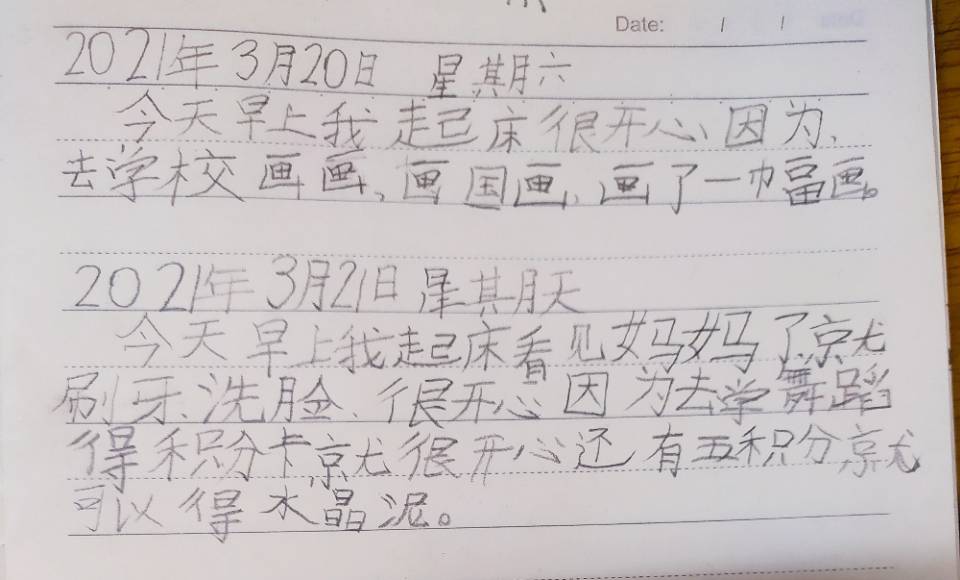 Date: / /
2021年3月20日 星期六
今天早上我起床很开心、因为、
去学校画画、画国画、画了一巾畐画。
2021年3月21日星期天
今天早上我起床看见妈妈了就
刷牙、洗脸、很开心因为去学舞蹈
得积分卡就很开心还有五积分就
可以得水晶泥。